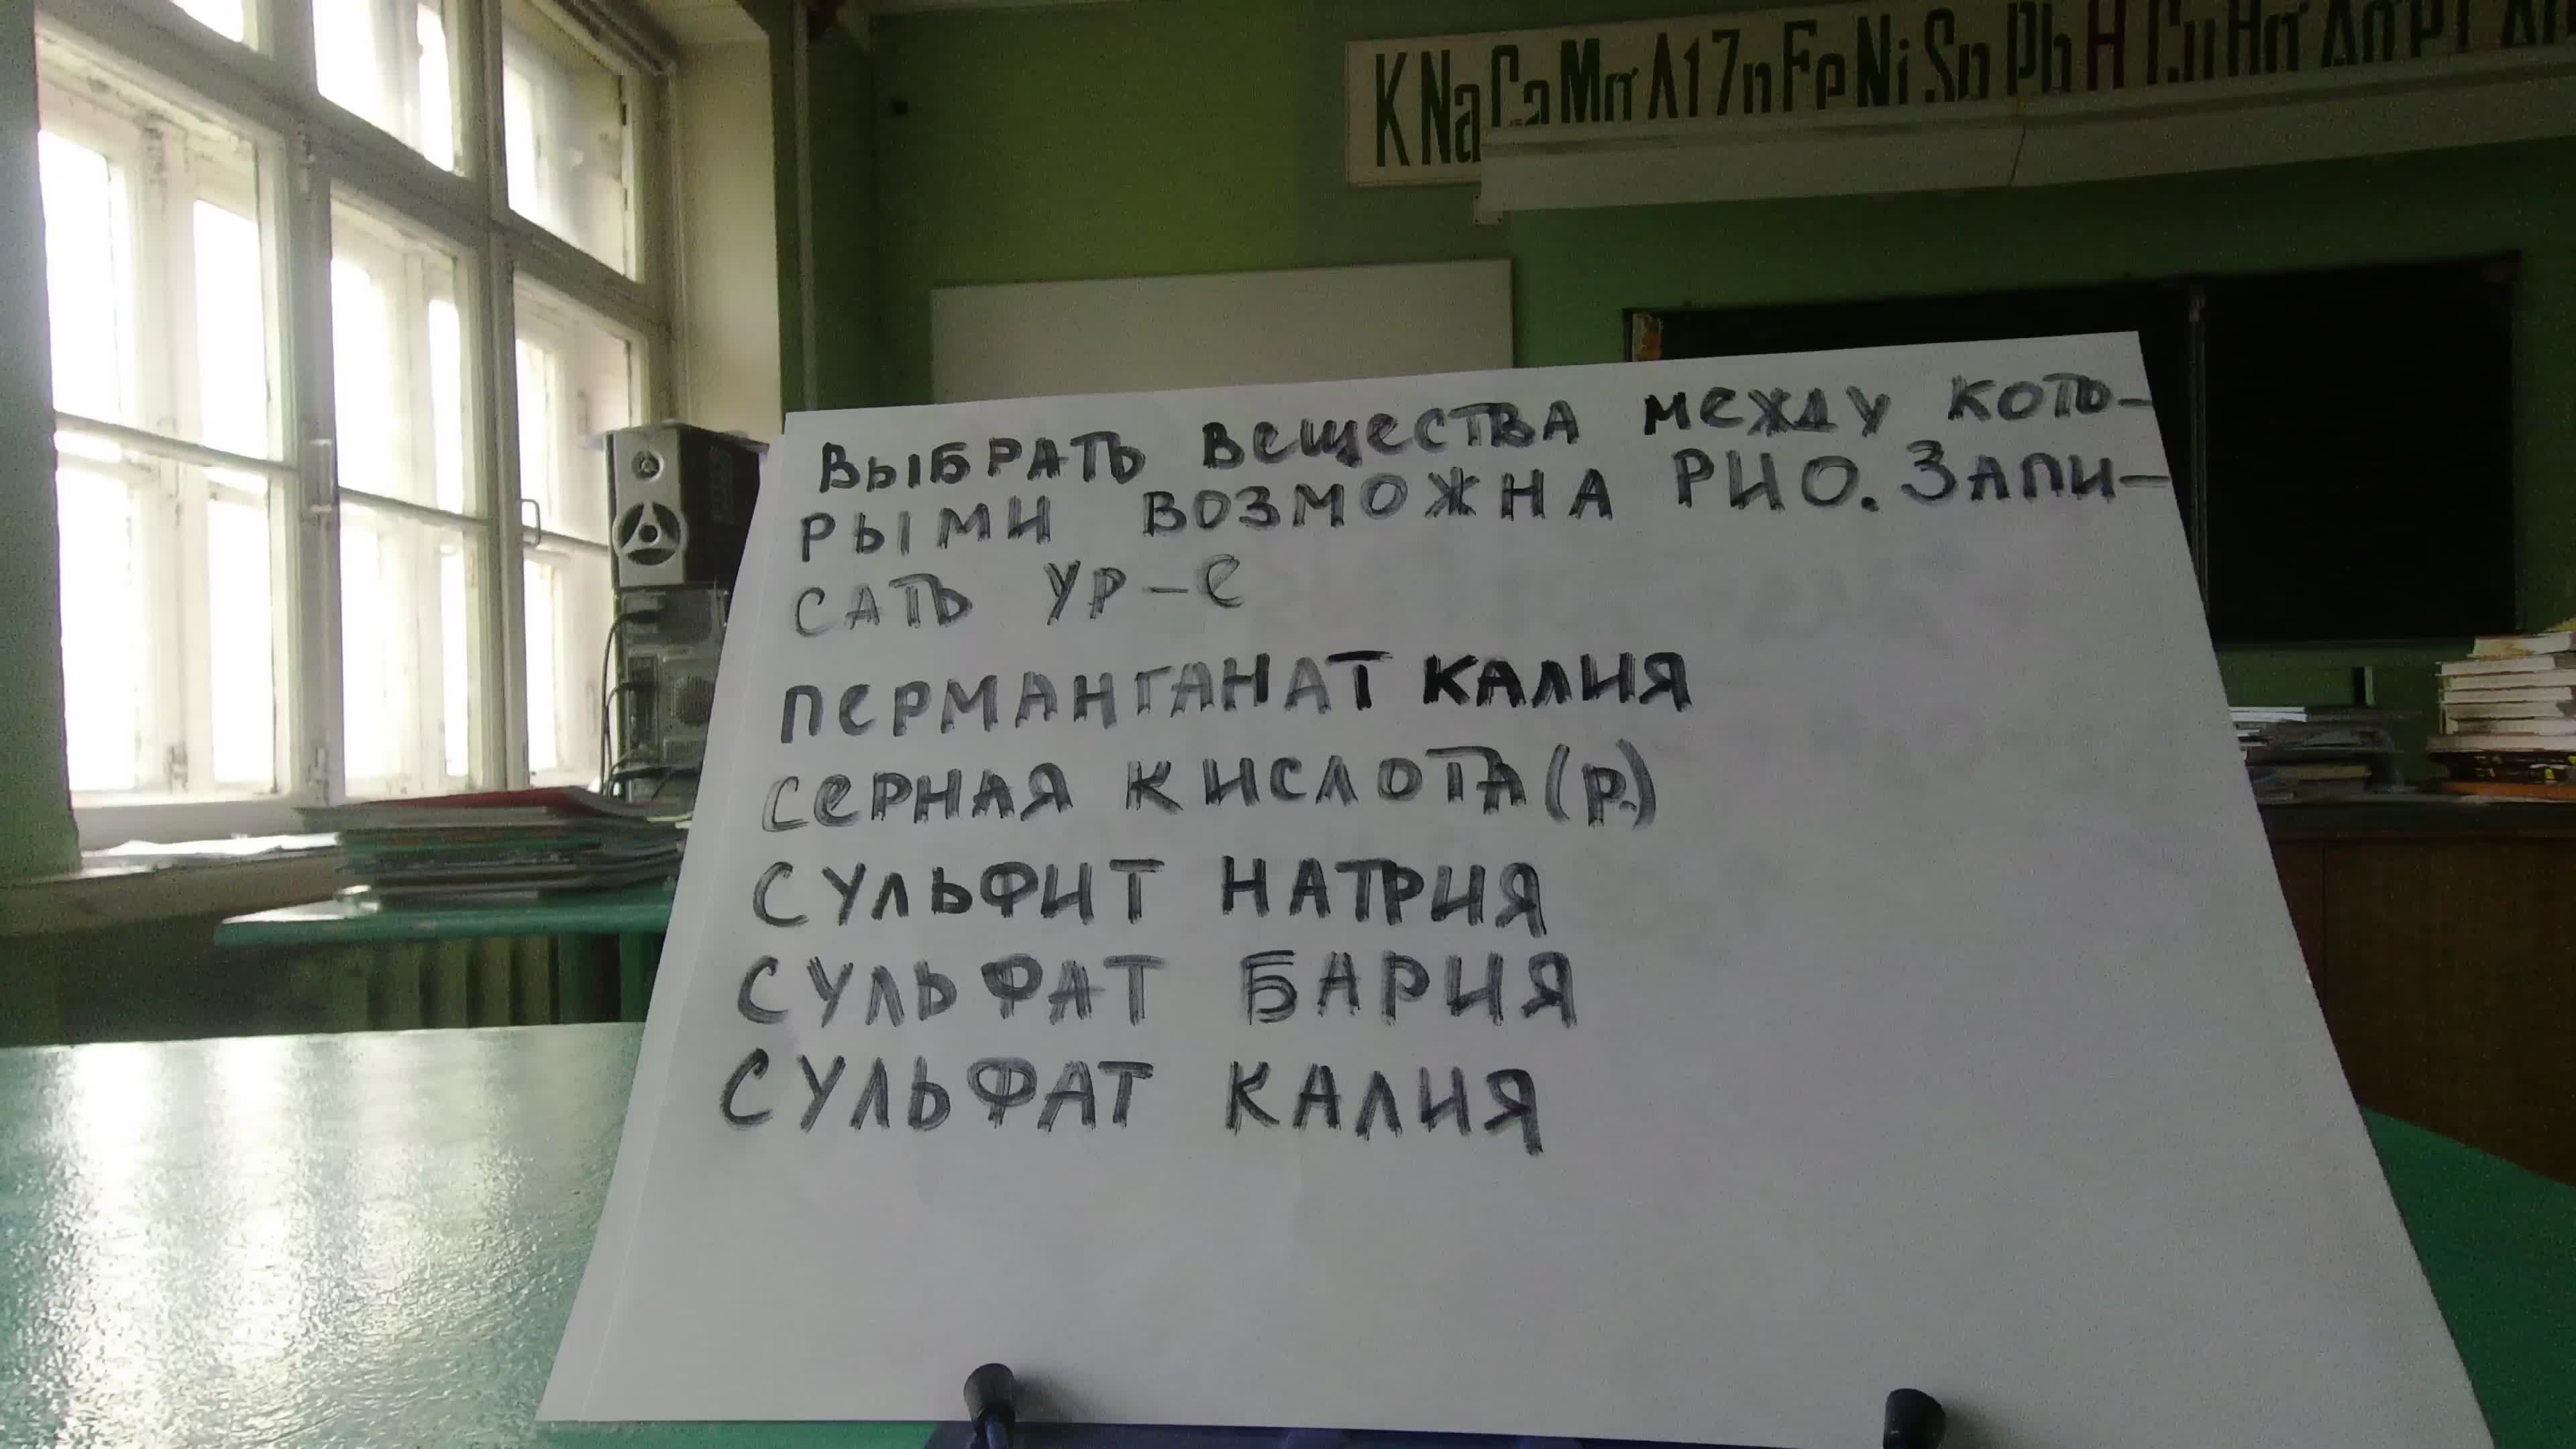 K Na Ca Mg Al Zn Fe Ni Sn Pb H Cu Hg Ag Pt Au
ВЫБРАТЬ ВЕЩЕСТВА МЕЖДУ КОТО-
РЫМИ ВОЗМОЖНА РИО. ЗАПИ-
САТЬ УР-Е
ПЕРМАНГАНАТ КАЛИЯ
СЕРНАЯ КИСЛОТА (р.)
СУЛЬФИТ НАТРИЯ
СУЛЬФАТ БАРИЯ
СУЛЬФАТ КАЛИЯ